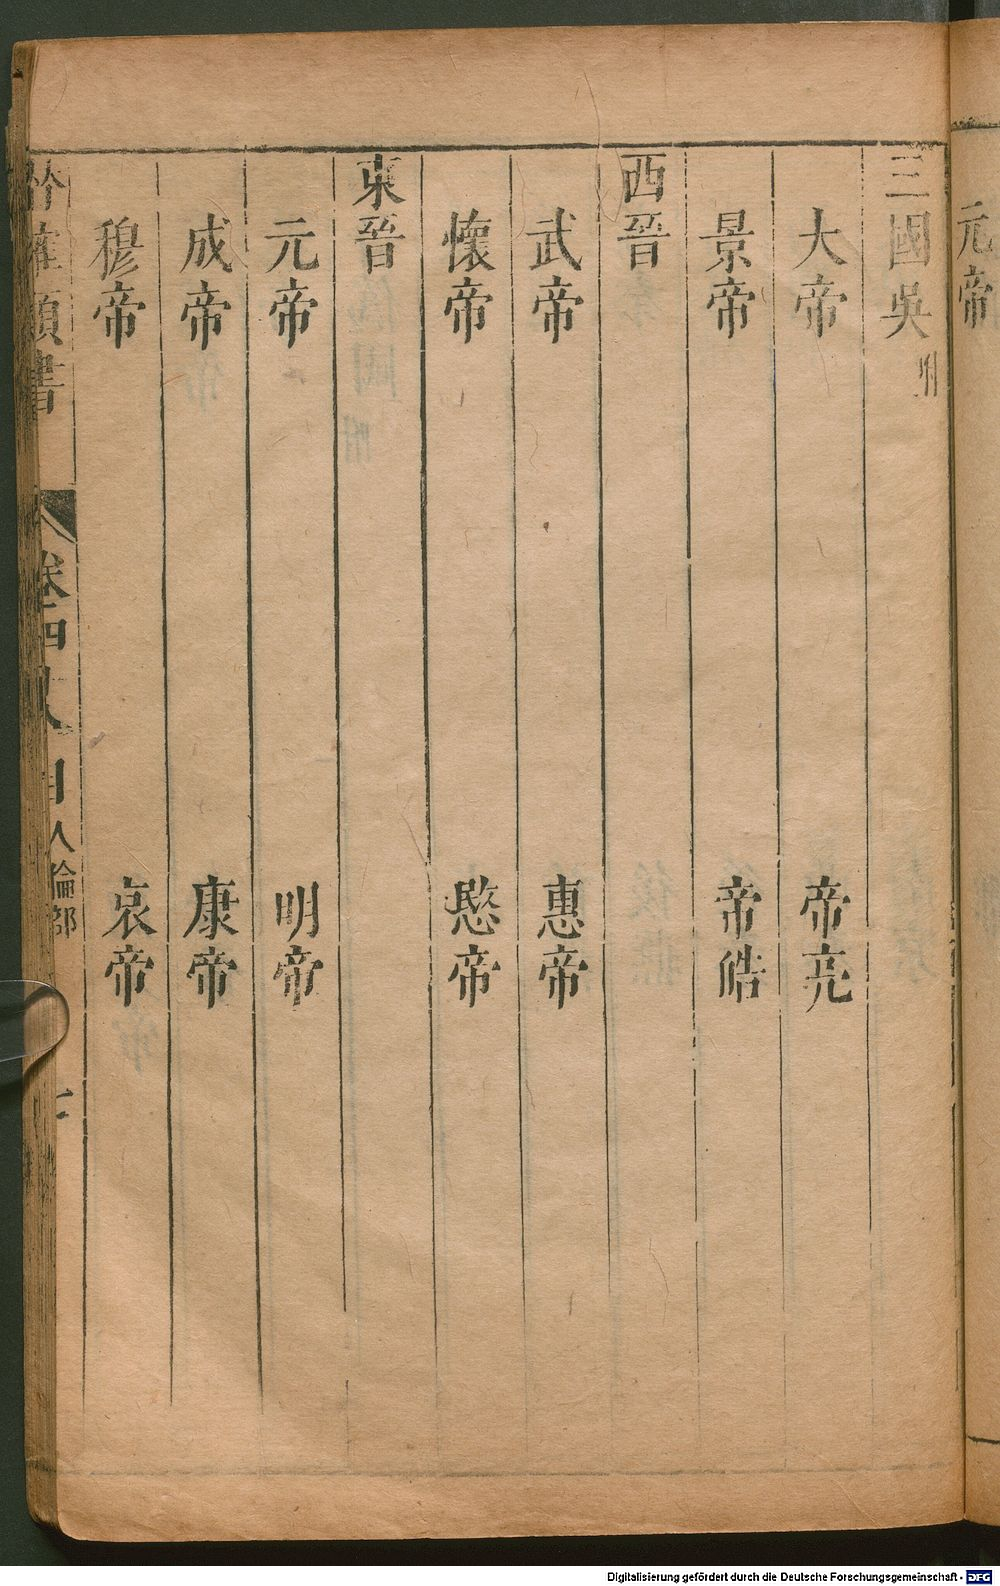 元帝
三國吳附
大帝 帝亮
景帝 帝皓
西晉
武帝 惠帝
懷帝 愍帝
東晉
元帝 明帝
成帝 康帝
穆帝 哀帝
類書 卷四 人倫部
Digitalisierung gefördert durch die Deutsche Forschungsgemeinschaft - DFG